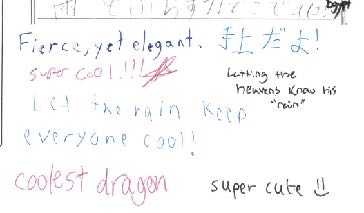 Fierce, yet elegant. 上だよ!
super cool!!!
Letting the
heavens know his
"rain"
Let the rain keep
everyone cool!
coolest dragon
super cute